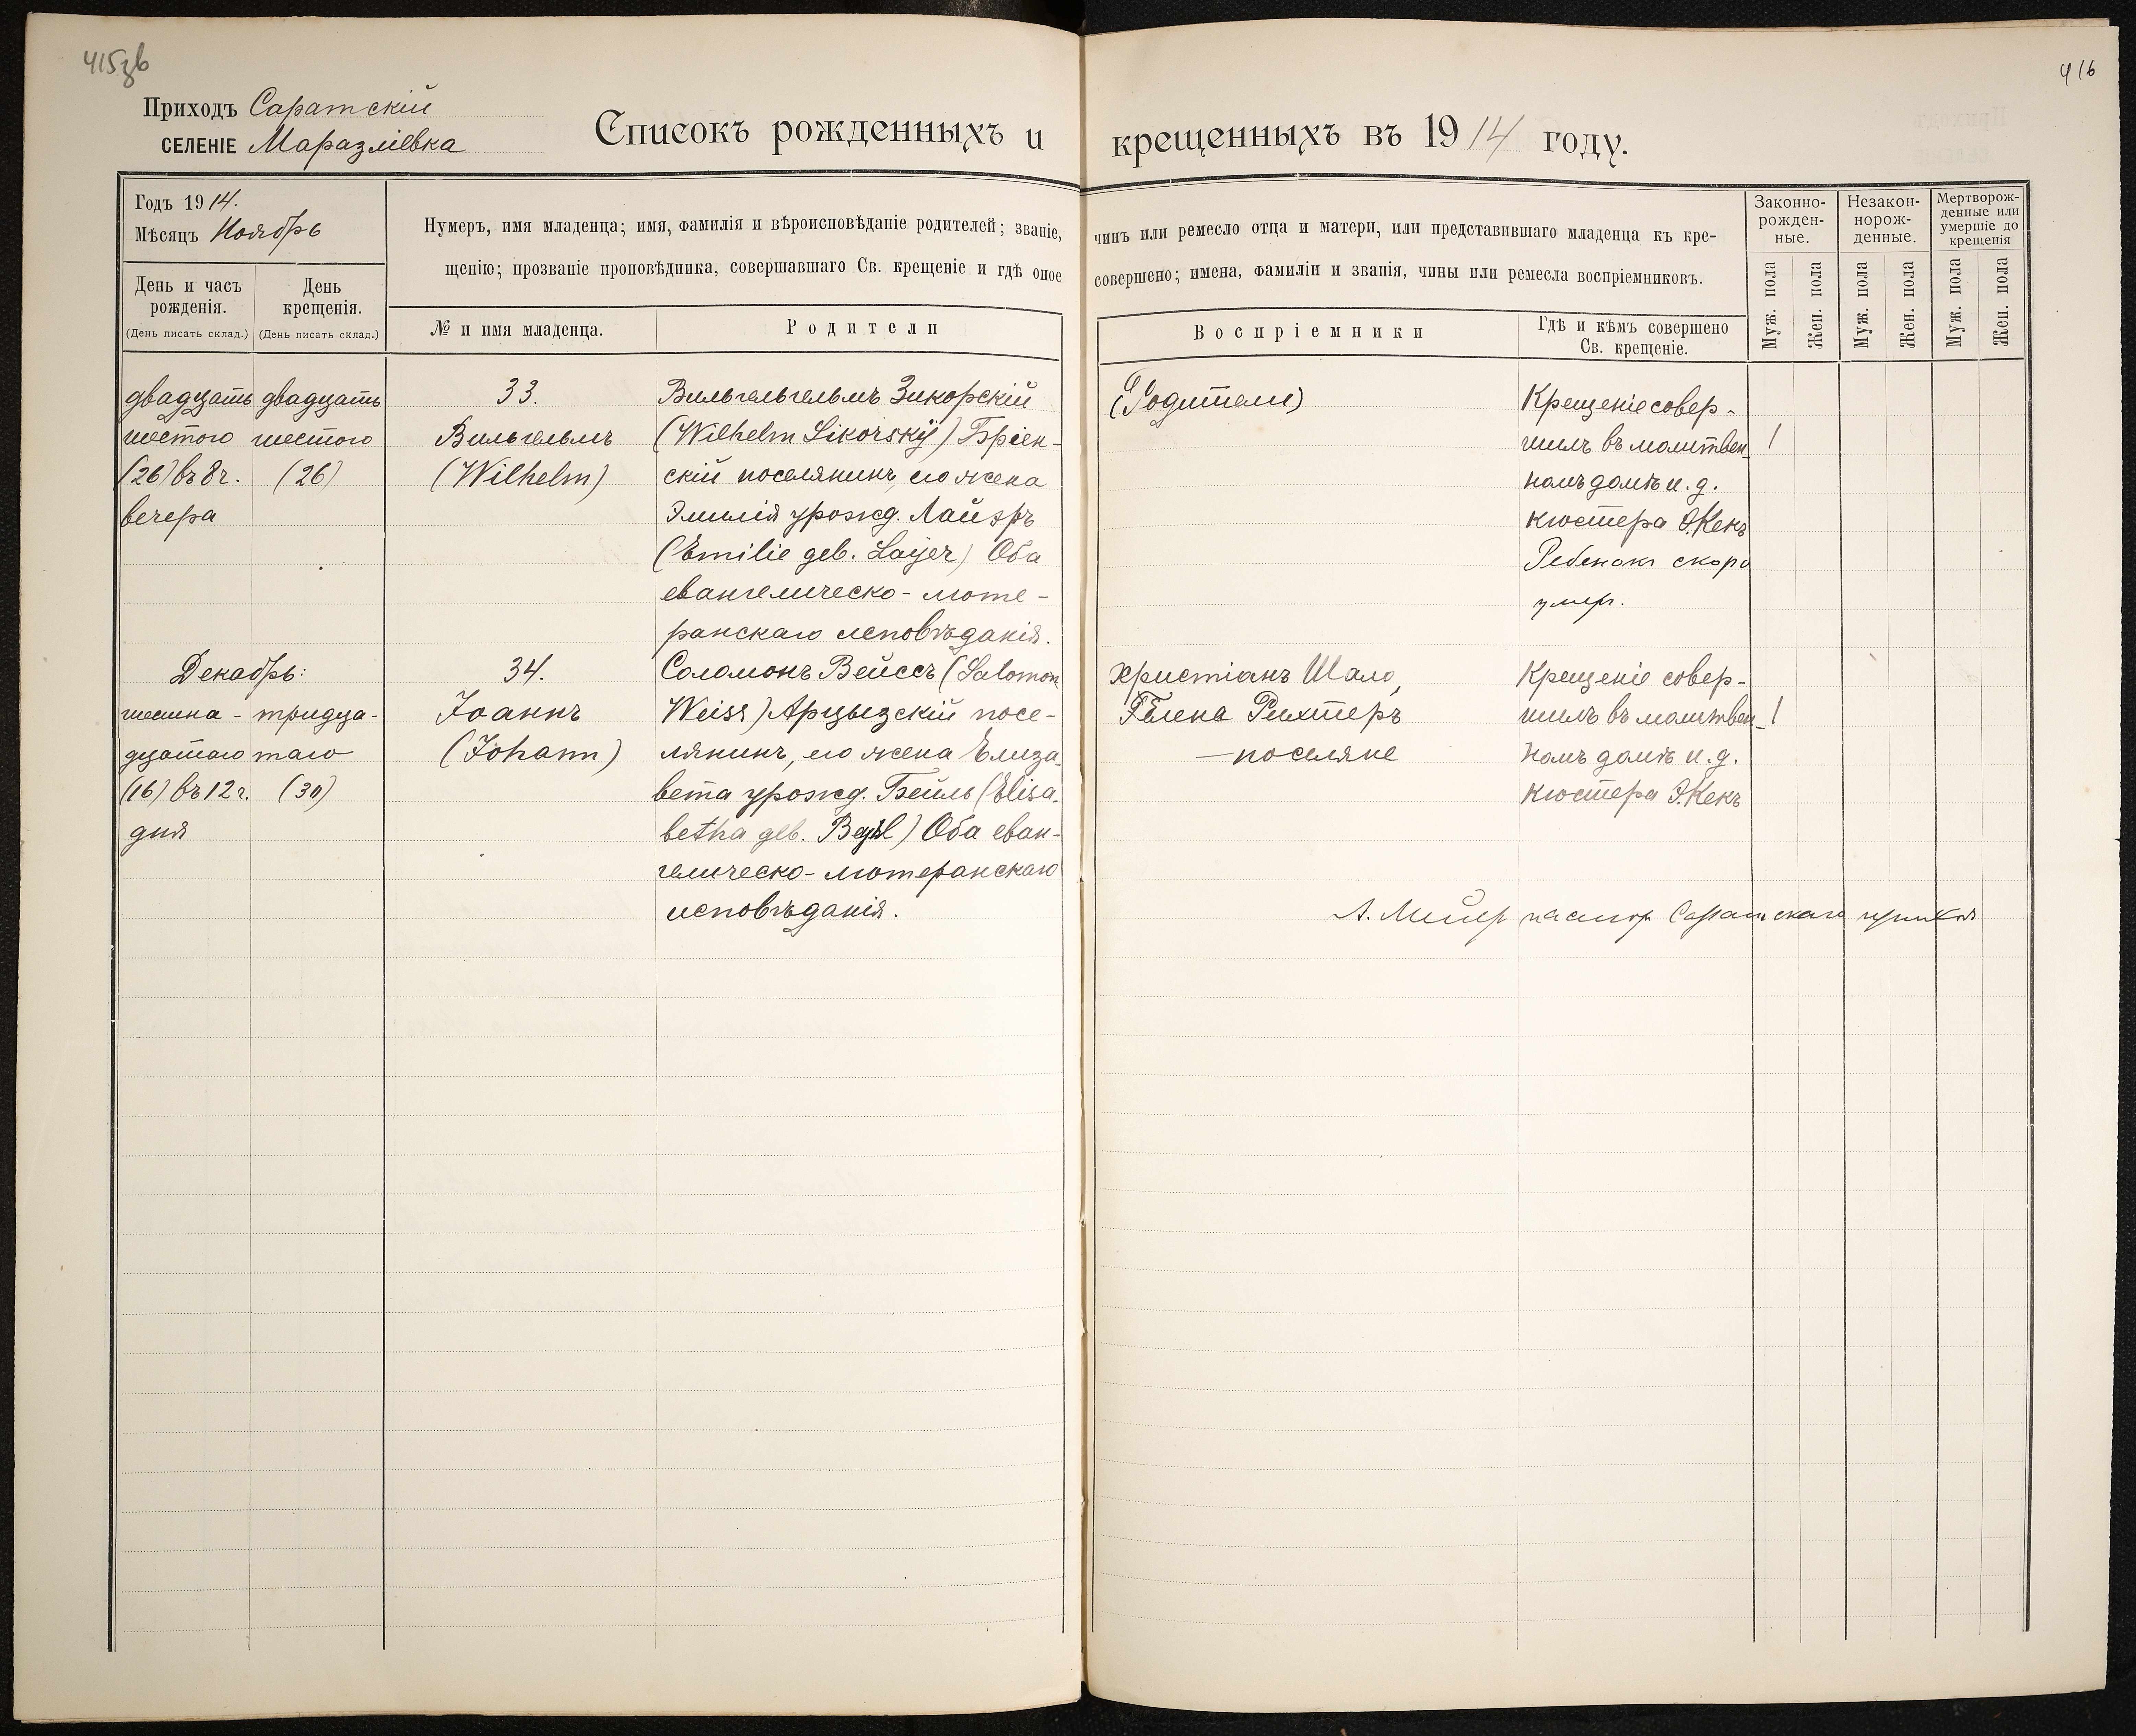 415зв
416
Приходъ Саратскій
СЕЛЕНІЕ Маразліевка
Списокъ рожденныхъ и крещенныхъ въ 1914 году.
Годъ 1914.
Мѣсяцъ Ноябрь
Нумеръ, имя младенца; имя, фамилія и вѣроисповѣданіе родителей; званіе, чинъ или ремесло отца и матери, или представившаго младенца къ кре-
щенію; прозваніе проповѣдника, совершавшаго Св. крещеніе и гдѣ оное совершено; имена, фамиліи и званія, чины или ремесла воспріемниковъ.
Законно-
рожден-
ные.
Незакон-
норож-
денные.
Мертворож-
денные или
умершіе до
крещенія
День и часъ
рожденія.
(День писать склад.)
День
крещенія.
(День писать склад.)
№ и имя младенца.
Родители
Воспріемники
Гдѣ и кѣмъ совершено
Св. крещеніе.
Муж. пола
Жен. пола
Муж. пола
Жен. пола
Муж. пола
Жен. пола
двадцать
шестого
(26) въ 8 ч.
вечера
двадцать
шестого
(26)
33.
Вильгельмъ
(Wilhelm)
Вильгельгельмъ Зикорскій
(Wilhelm Sikorsky) Бріен-
скій поселянинъ, его жена
Эмилія урожд. Лайэръ
(Emilie geb. Layer) Оба
евангелическо-люте-
ранскаго исповѣданія.
(Родители)
Крещеніе совер-
шилъ въ молитвен-
номъ домѣ и. д.
кюстера Э. Кекъ
Ребенокъ скоро
умеръ.
1
Декабрь:
шестна-
дцатаго
(16) въ 12 ч.
дня
тридца-
таго
(30)
34.
Іоаннъ
(Johann)
Соломонъ Вейссъ (Salomon
Weiss) Арцызскій посе-
лянинъ, его жена Елиза-
вета урожд. Бейль (Elisa-
betha geb. Beyl) Оба еван-
гелическо-лютеранскаго
исповѣданія.
Христіанъ Шало,
Елена Рихтеръ
—поселяне
Крещеніе совер-
шилъ въ молитвен-
номъ домѣ и. д.
кюстера Э. Кекъ
1
А. Мейер пастор Саратскаго прихода